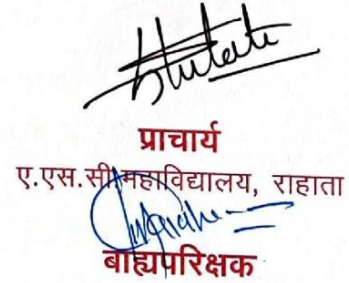 प्राचार्य
ए.एस.सी. महाविद्यालय, राहाता
बाह्यपरिक्षक